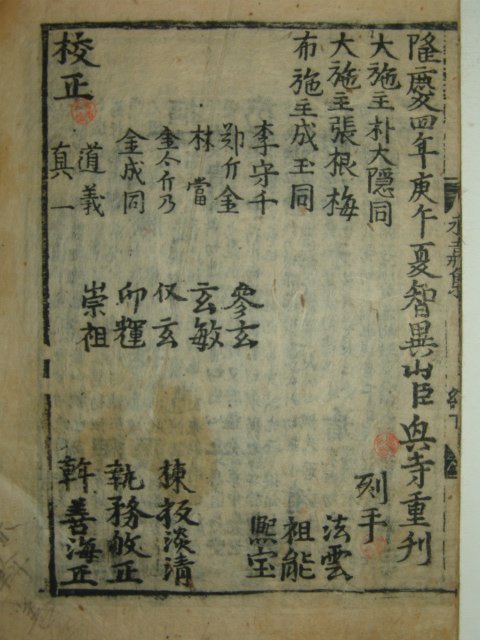 隆慶四年庚午夏智異山臣興寺重刊
大施主朴大隱同
大施主張根梅
布施主成玉同
李守千
鄭介金
林當
金仝介乃
金成同
道義
真一
校正
參玄
玄敏
仅玄
印輝
崇祖
刻手
法雲
祖能
熙宝
棟板淡清
執務敀正
幹善海正
永嘉集